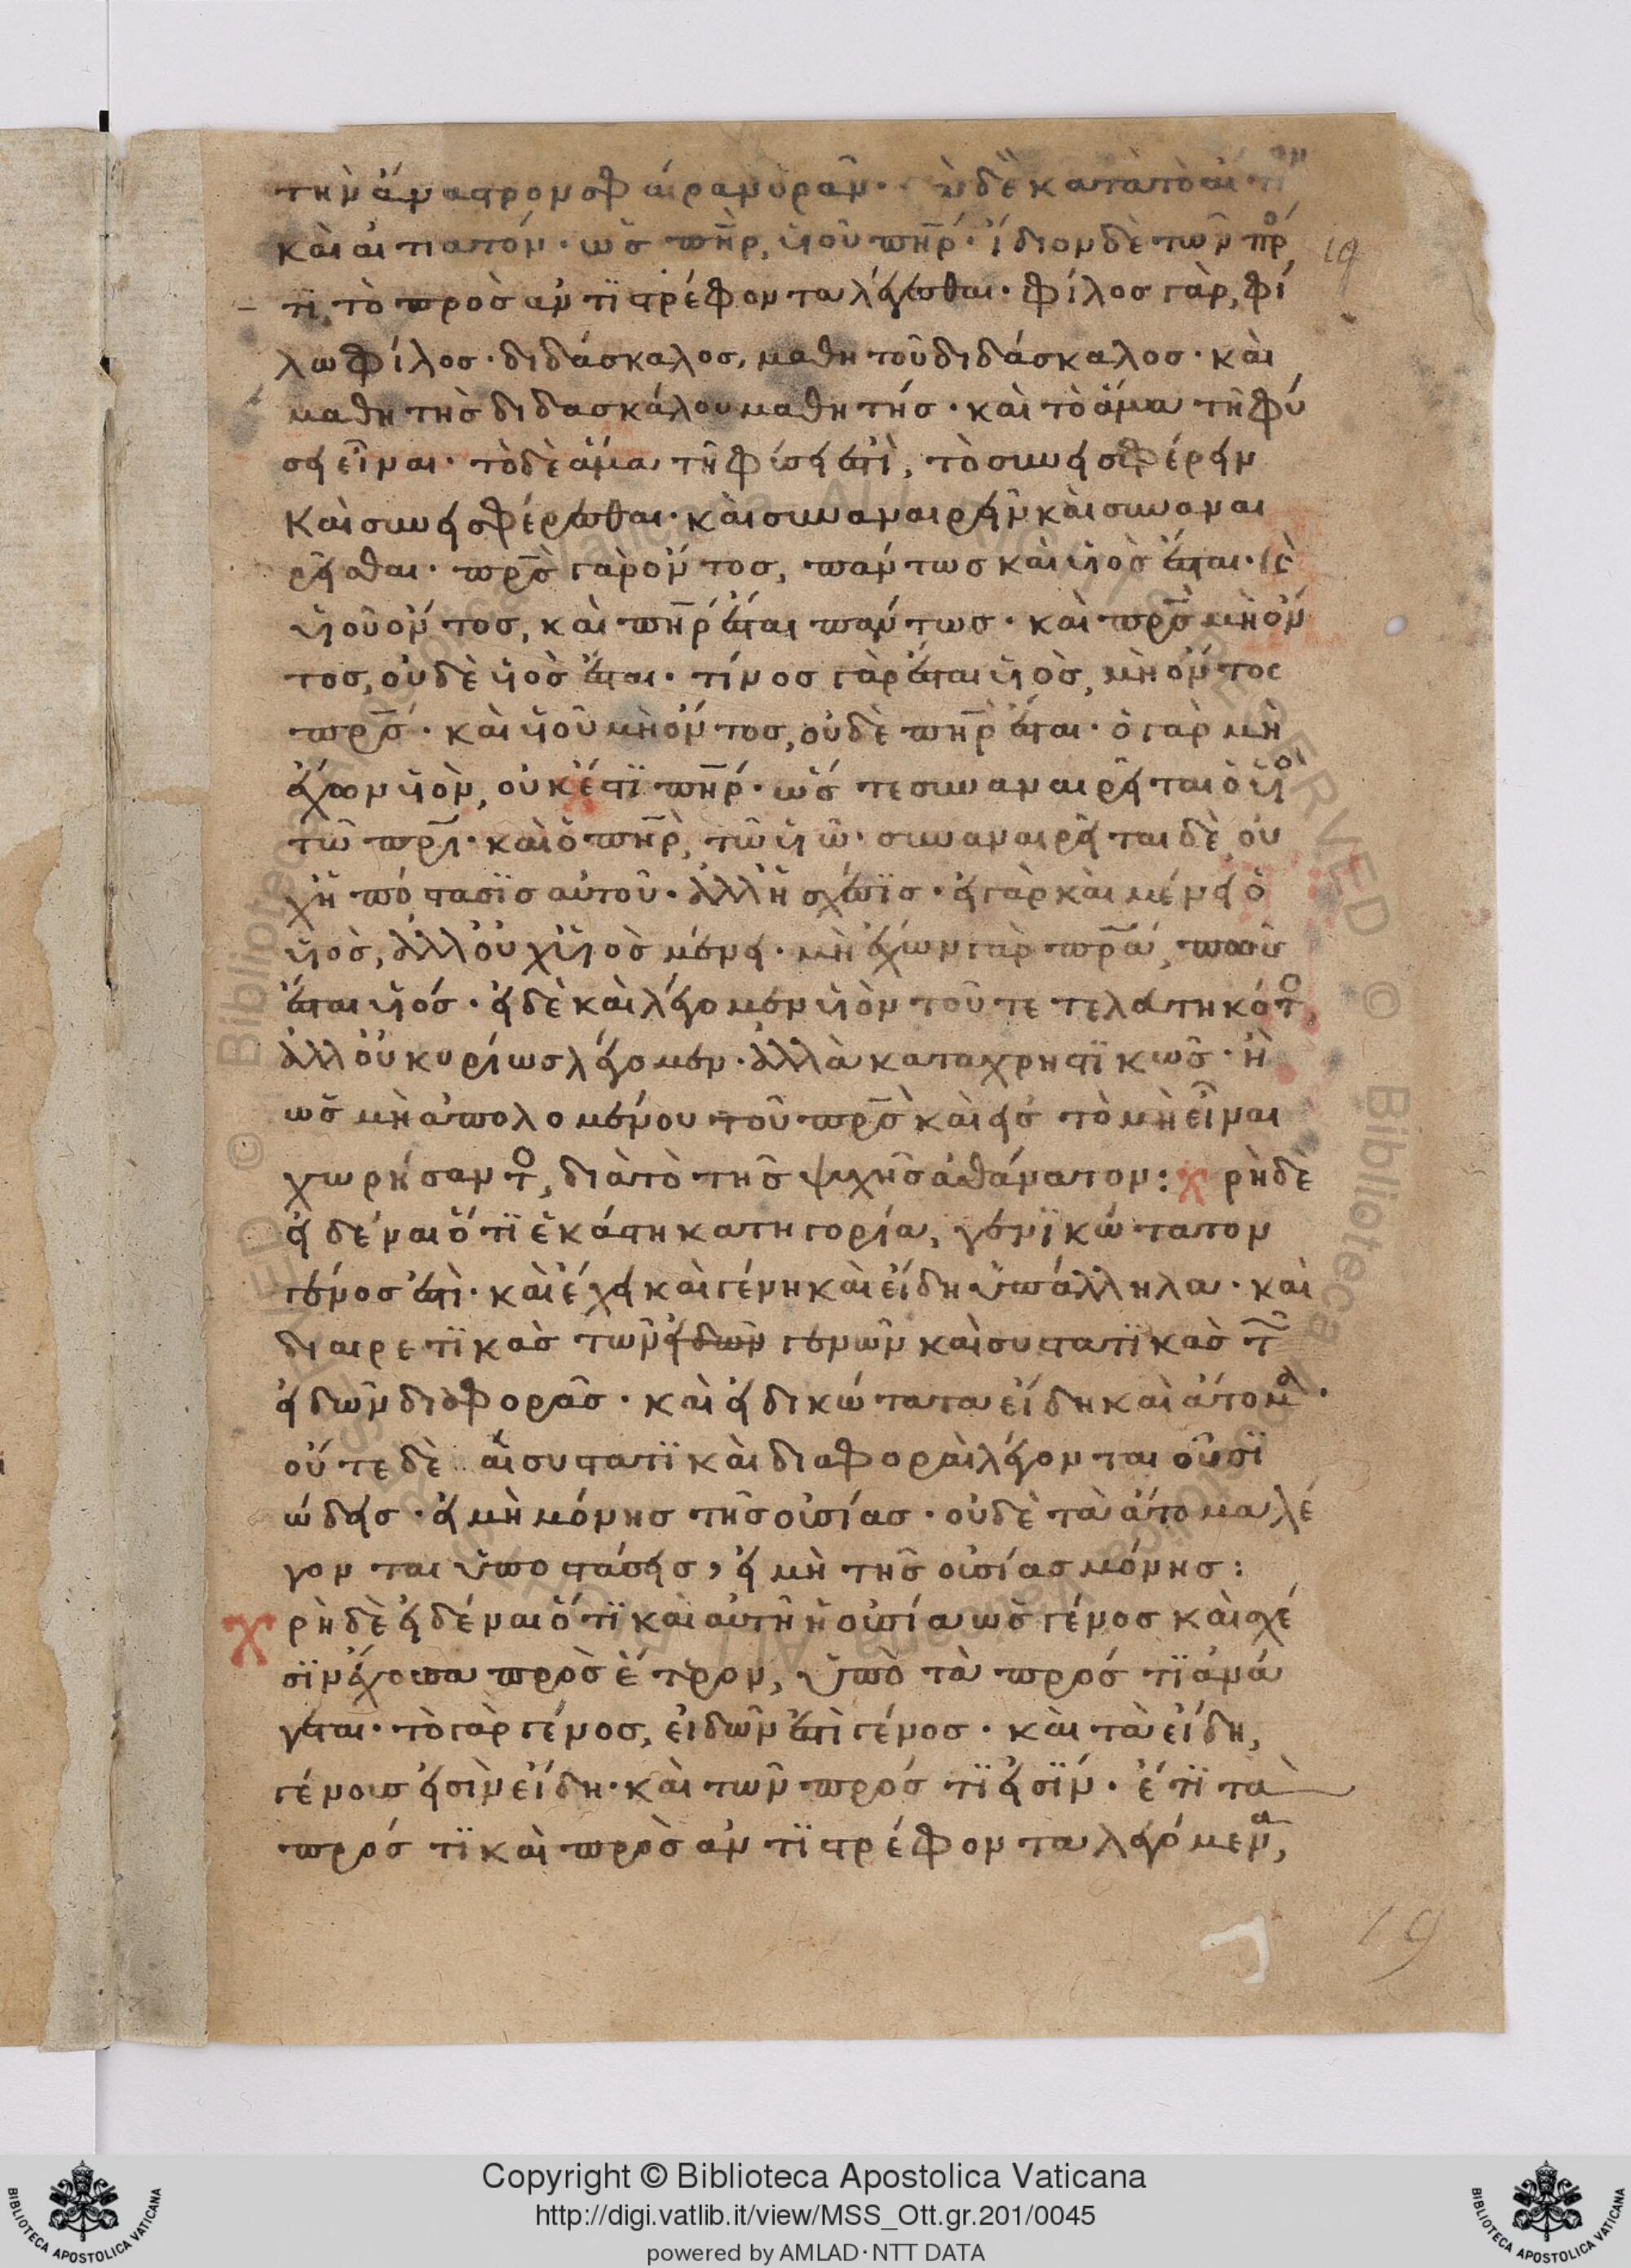 τὴν ἄναστρον σφαῖραν ὁρᾶν· ἢ δὲ κατὰ τὸ αἴτιον
καὶ αἰτιατόν· ὡς πηρ, υἱοῦ πηρ· ἴδιον δὲ τῶν πρό
τι, τὸ πρὸς ἀντιστρέφοντα λέγεσθαι· φίλος γὰρ, φί
λω φίλος· διδάσκαλος, μαθητοῦ διδάσκαλος· καὶ
μαθητὴς διδασκάλου μαθητής· καὶ τὸ ἅμα τῆ φύ
σει εἶναι· τὸ δὲ ἅμα τῆ φύσει ἐστὶ, τὸ συνεισφέρειν
καὶ συνεισφέρεσθαι· καὶ συναναιρεῖν καὶ συναναι
ρεῖσθαι· πρς γὰρ ὄντος, πάντως καὶ υἱὸς ἔσται· καὶ
υἱοῦ ὄντος, καὶ πηρ ἔσται πάντως· καὶ πρς μὴ ὄν
τος, οὐδὲ υἱὸς ἔσται· τίνος γὰρ ἔσται υἱὸς, μὴ ὄντος
πρς· καὶ υἱοῦ μὴ ὄντος, οὐδὲ πηρ ἔσται· ὁ γὰρ μὴ
ἔχων υἱὸν, οὐκ ἔστι πηρ· ὥστε συναναιρεῖται ὁ υἱὸς
τῶ πρι· καὶ ὁ πηρ, τῶ υἱῶ· συναναιρεῖται δὲ οὐ
χ ἡ ὑπόστασις αὐτοῦ· ἀλλ ἡ σχέσις· εἰ γὰρ καὶ μένει ὁ
υἱὸς, ἀλλ οὐχ υἱὸς μένει· μὴ ἔχων γὰρ πρα, πῶς
ἔσται υἱός· εἰ δὲ καὶ λέγομεν υἱὸν τοῦ τετελευτηκότος,
ἀλλ οὐ κυρίως λέγομεν· ἀλλὰ καταχρηστικῶς· ἢ
ὡς μὴ ἀπολομένου τοῦ πρς καὶ εἰς τὸ μὴ εἶναι
χωρήσαντος, διὰ τὸ τῆς ψυχῆς ἀθάνατον: χρὴ δὲ
εἰδέναι ὅτι ἑκάστη κατηγορία, γενικώτατον
γένος ἐστὶ· καὶ ἔχει καὶ γένη καὶ εἴδη ὑπάλληλα· καὶ
διαιρετικὰς τῶν εἰδῶν γενῶν καὶ συστατικὰς τῶν
εἰδῶν διαφορὰς· καὶ εἰδικώτατα εἴδη καὶ ἄτομα·
οὔτε δὲ αἱ συστατικαὶ διαφοραὶ λέγονται οὐσι
ώδεις· εἰ μὴ μόνης τῆς οὐσίας· οὐδὲ τὰ ἄτομα λέ
γονται ὑποστάσεις, εἰ μὴ τῆς οὐσίας μόνης:
χρὴ δὲ εἰδέναι ὅτι καὶ αὐτὴ ἡ οὐσία ὡς γένος καὶ σχέ
σιν ἔχουσα πρὸς ἕτερον, ὑπὸ τὰ πρός τι ἀνά
γεται· τὸ γὰρ γένος, εἰδῶν ἐστὶ γένος· καὶ τὰ εἴδη,
γένους εἰσὶν εἴδη· καὶ τῶν πρός τι εἰσίν· ἔτι τὰ
πρός τι καὶ πρὸς ἀντιστρέφοντα λεγόμενα,
19
19
Copyright © Biblioteca Apostolica Vaticana
http://digi.vatlib.it/view/MSS_Ott.gr.201/0045
powered by AMLAD·NTT DATA
BIBLIOTECA APOSTOLICA VATICANA
BIBLIOTECA APOSTOLICA VATICANA